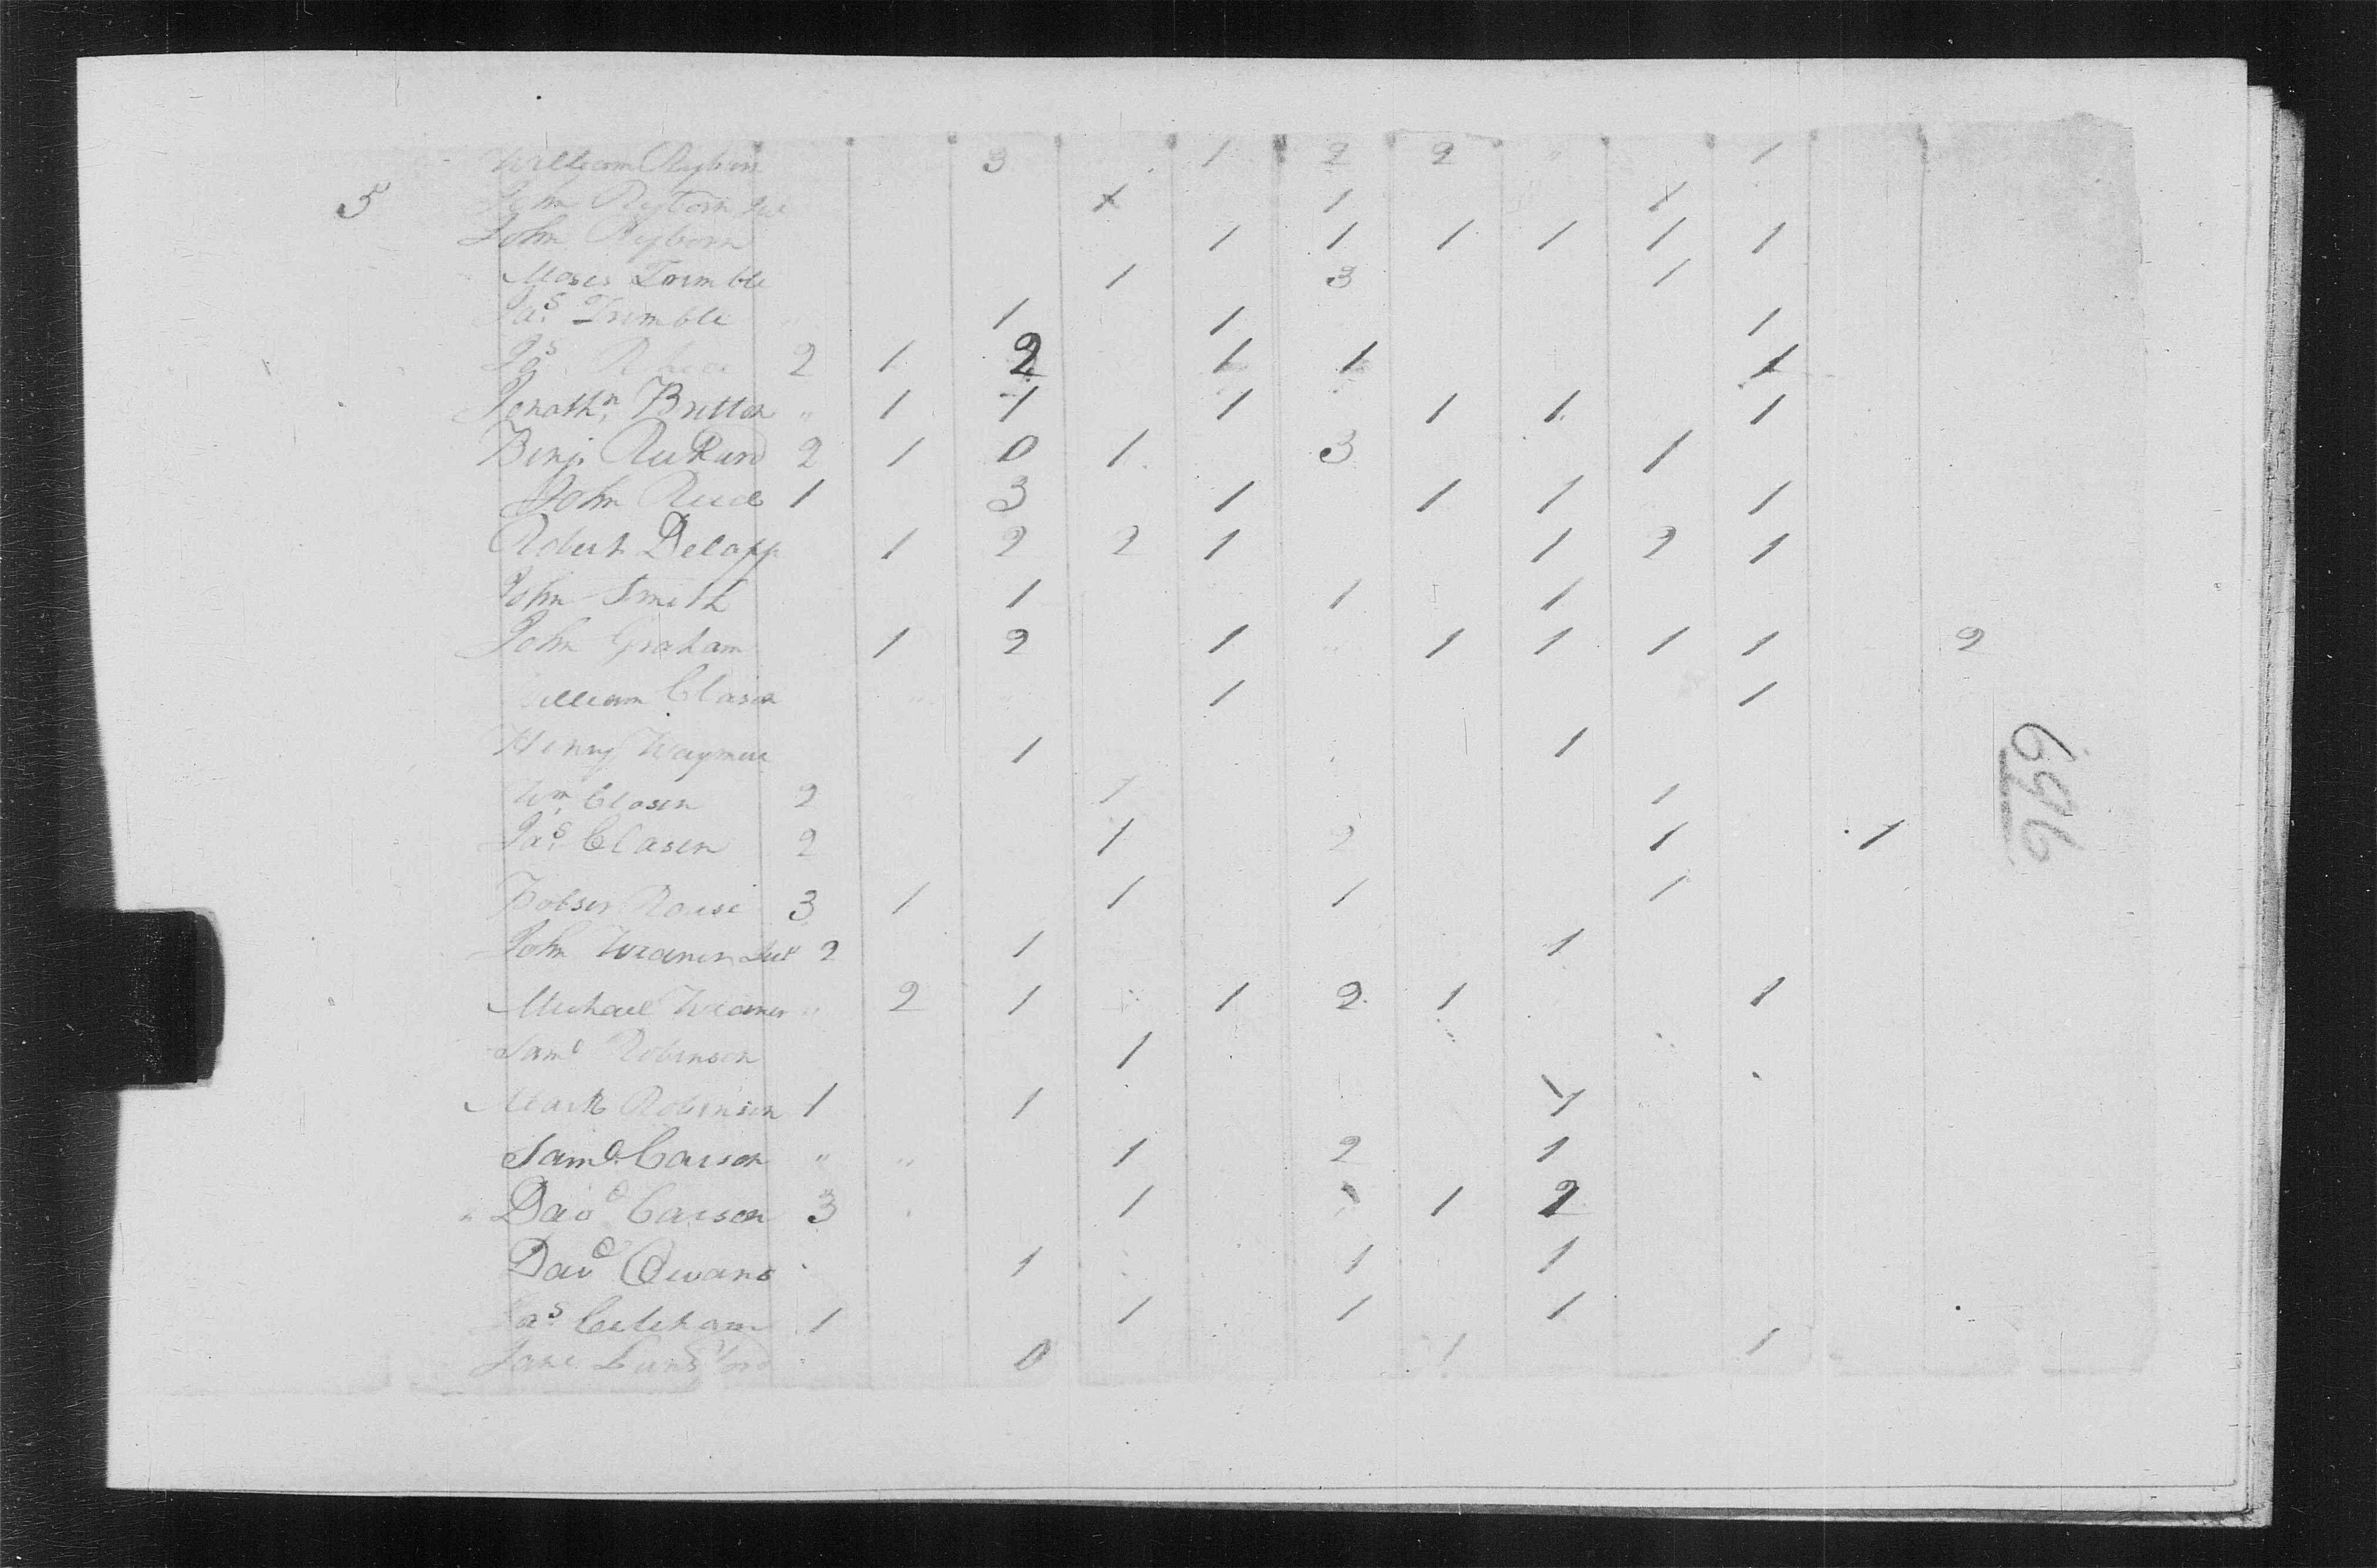 William Ryborn 3 1 2 2 " 1
5 John Ryborn Jur 1 1 1
John Ryborn 1 1 1 1 1 1
Moses Trimble 1 3 1
Jas. Trimble 1 1 1
Jas. 2 1 2 1 1 1
Jonathn. Britton " 1 1 1 1 1 1
Benj. Rickard 2 1 0 1 3 1
John Reed 1 3 1 1 1 1
Robert Delapp 1 2 2 1 1 2 1
John Smith 1 1 1
John Graham 1 2 1 1 1 1 1 2
William Clasen 1 1
Henry Waymire 1 1
Wm. Clasen 2 1 1
Jas. Clasen 2 1 2 1 1
Rouse 3 1 1 1 1
John Widener Jur 2 1 1
Michael Widener " 2 1 1 2 1 1
Saml Robinson 1
Mark Robinson 1 1 1
Saml. Carson " " 1 2 1
Davd Carson 3 1 1 2
Davd Owans 1 1 1
Jas. 1 1 1 1
Jane Lunsford 0 1 1
696